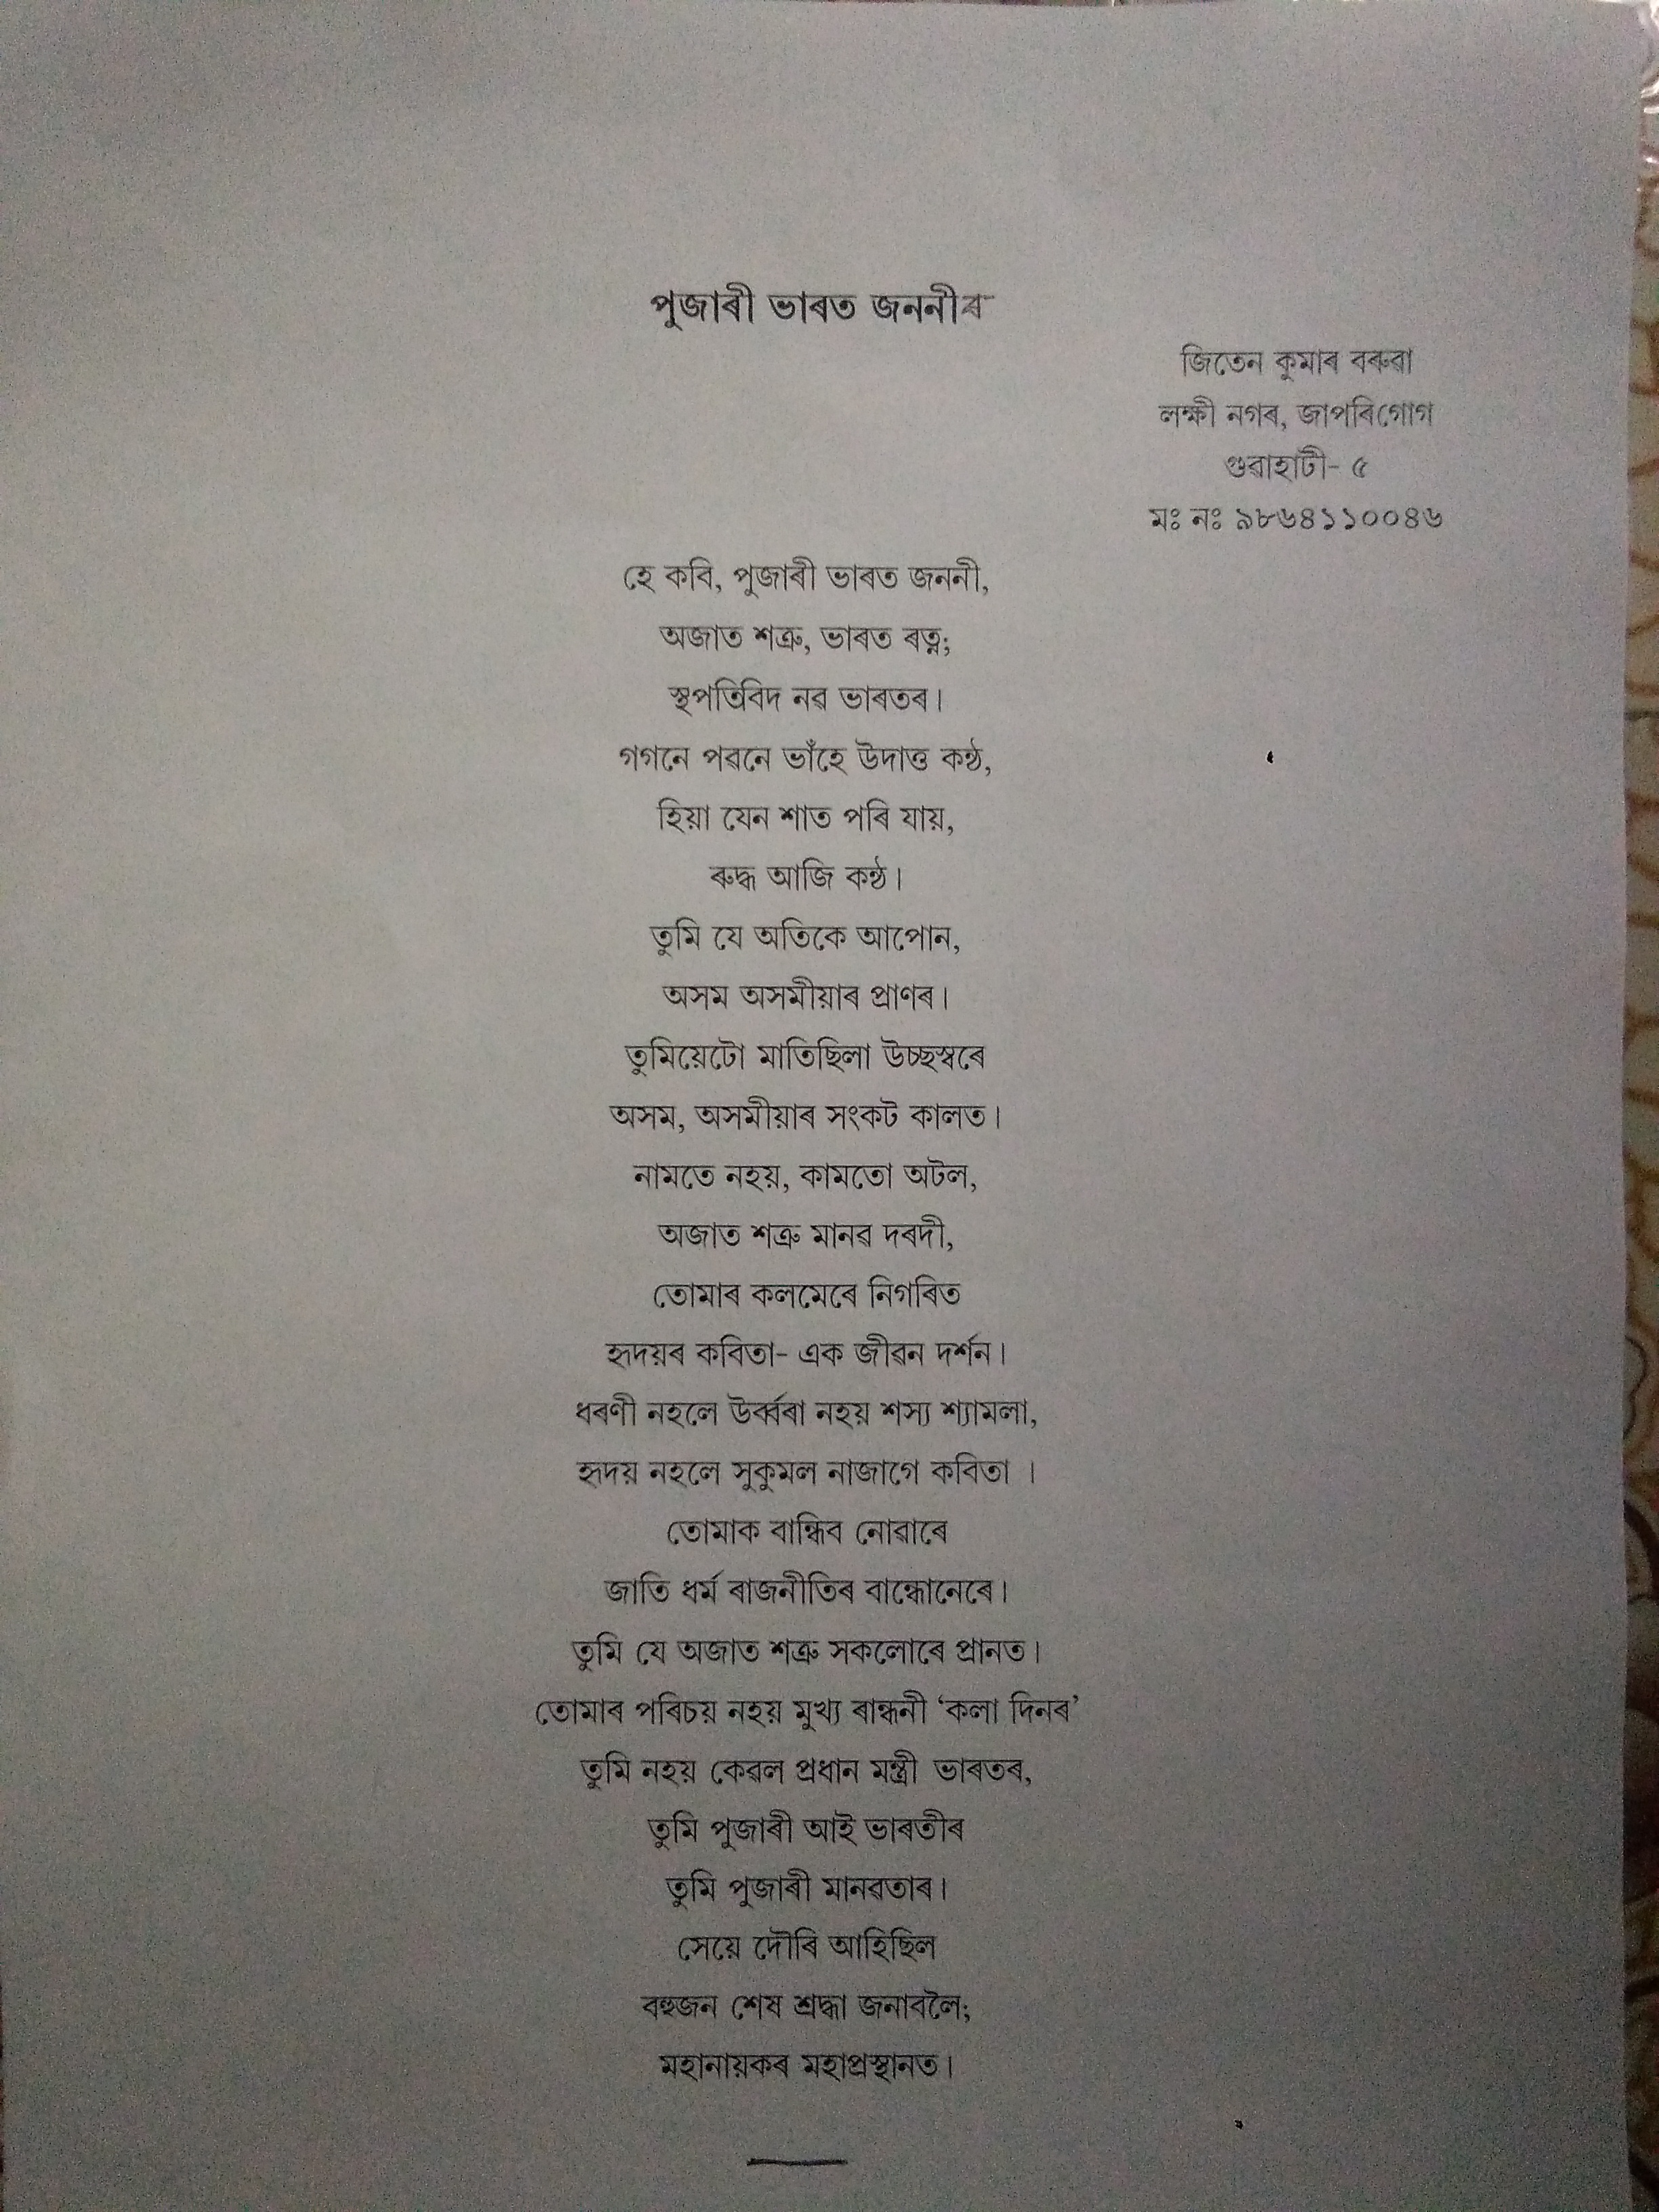 পুজাৰী ভাৰত জননীৰ
জিতেন কুমাৰ বৰুৱা
লক্ষী নগৰ, জাপৰিগোগ
গুৱাহাটী- ৫
মঃ নঃ ৯৮৬৪১১০০৪৬
হে কবি, পুজাৰী ভাৰত জননী,
অজাত শত্ৰু, ভাৰত ৰত্ন;
স্থপতিবিদ নৱ ভাৰতৰ।
গগনে পৱনে ভাঁহে উদাত্ত কন্ঠ,
হিয়া যেন শাত পৰি যায়,
ৰুদ্ধ আজি কন্ঠ।
তুমি যে অতিকে আপোন,
অসম অসমীয়াৰ প্ৰাণৰ।
তুমিয়েটো মাতিছিলা উচ্ছস্বৰে
অসম, অসমীয়াৰ সংকট কালত।
নামতে নহয়, কামতো অটল,
অজাত শত্ৰু মানৱ দৰদী,
তোমাৰ কলমেৰে নিগৰিত
হৃদয়ৰ কবিতা- এক জীৱন দৰ্শন।
ধৰণী নহলে উৰ্ব্বৰা নহয় শস্য শ্যামলা,
হৃদয় নহলে সুকুমল নাজাগে কবিতা ।
তোমাক বান্ধিব নোৱাৰে
জাতি ধৰ্ম ৰাজনীতিৰ বান্ধোনেৰে।
তুমি যে অজাত শত্ৰু সকলোৰে প্ৰানত।
তোমাৰ পৰিচয় নহয় মুখ্য ৰান্ধনী ‘কলা দিনৰ’
তুমি নহয় কেৱল প্ৰধান মন্ত্ৰী ভাৰতৰ,
তুমি পুজাৰী আই ভাৰতীৰ
তুমি পুজাৰী মানৱতাৰ।
সেয়ে দৌৰি আহিছিল
বহুজন শেষ শ্ৰদ্ধা জনাবলৈ;
মহানায়কৰ মহাপ্ৰস্থানত।